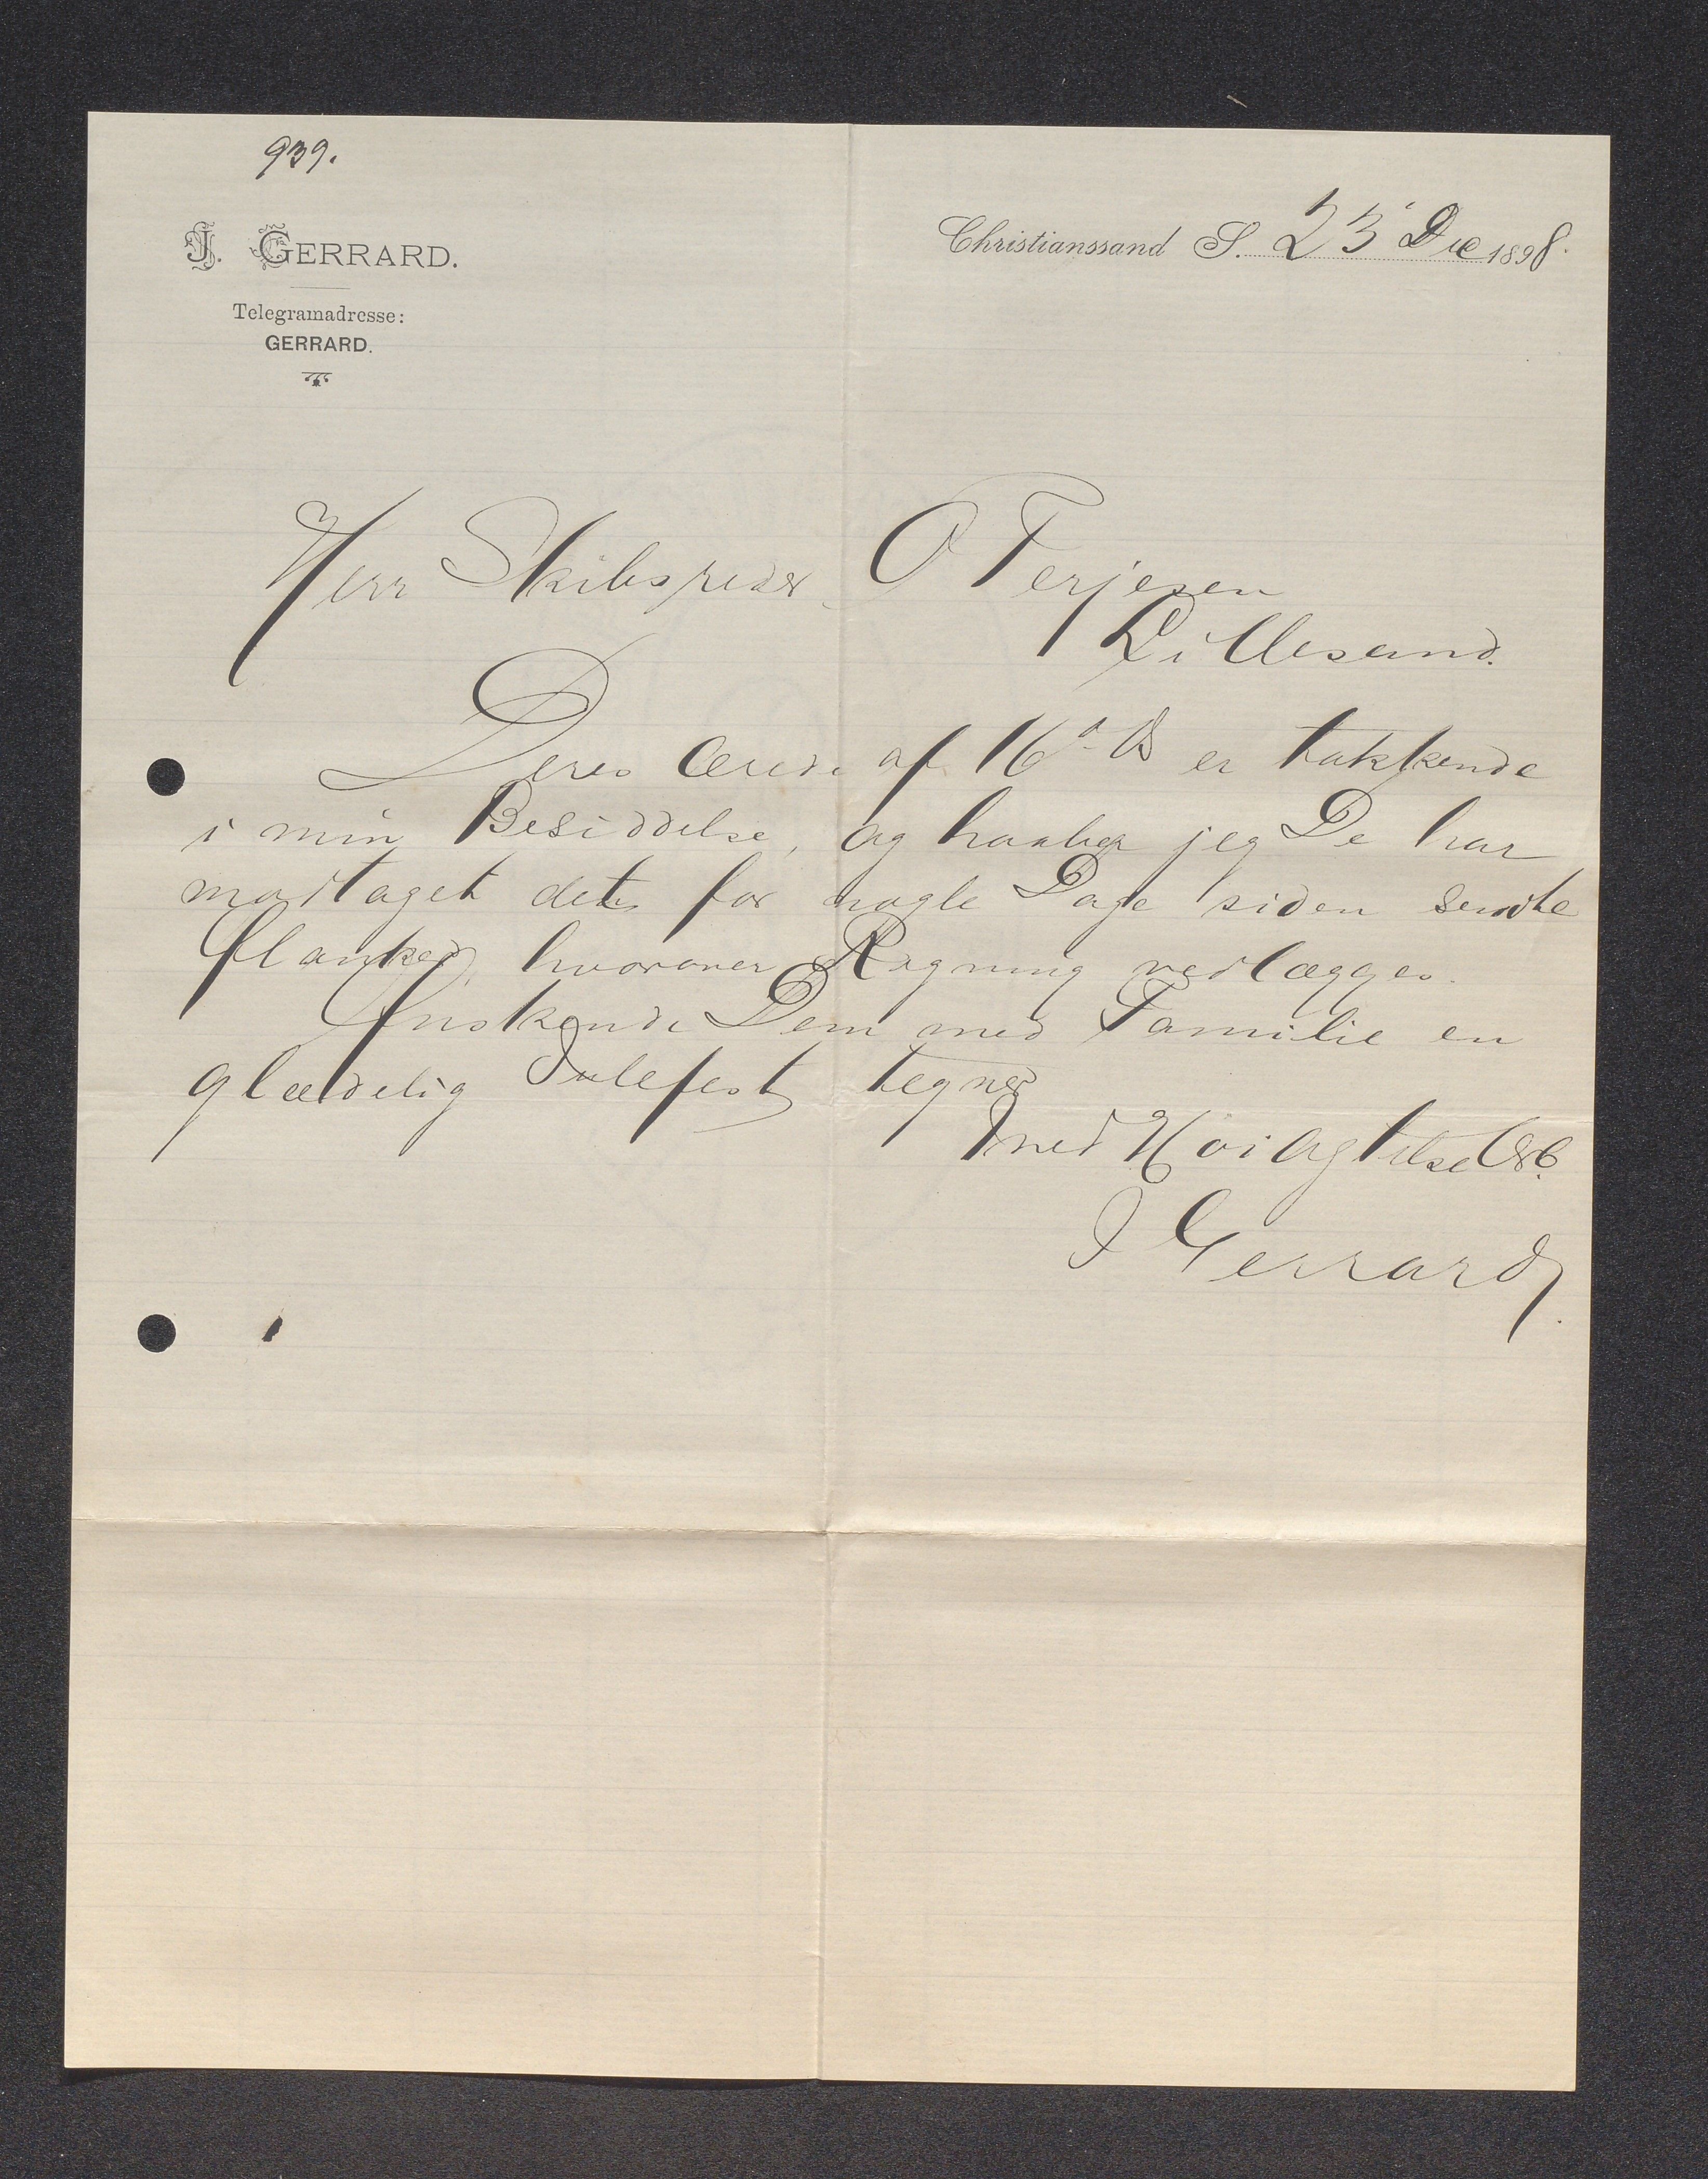 939.
J. GERRARD.
Telegramadresse:
GERRARD.
Christianssand S. 23' Dec 1898.
Herr Skibsreder O Terjesen
Lillesand.
Deres ærede af 16' ds er takkende
i min Besiddelse, og haaber jeg De har
modtaget det for nogle Dage siden sendte
, hvorover Regning vedlægges.
Ønskende Dem med Familie en
glædelig Julefest tegner
med Høiagtelse
J Gerrard.